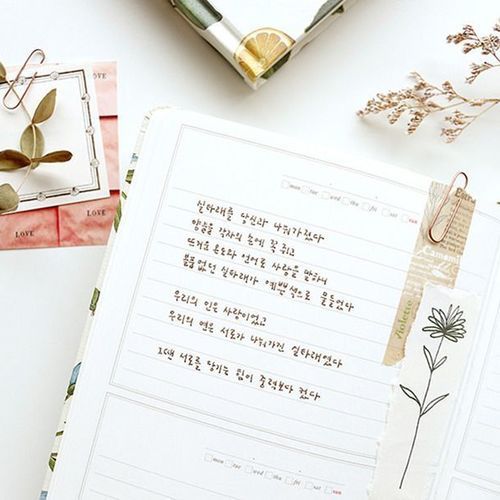 LOVE
LOVE
LOVE
mon tue wed thu fri sat sun
실타래를 당신과 나눠가졌다
양끝을 각자의 손에 꼭 쥐고
뜨거운 온도와 언어로 사랑을 말하니
볼품없던 실타래가 예쁜색으로 물들었다
우리의 인은 사랑이었고
우리의 연은 서로가 나눠가진 실타래였다
그땐 서로를 당기는 힘이 중력보다 컸다
Camom
violette
mon tue wed thu fri sat sun